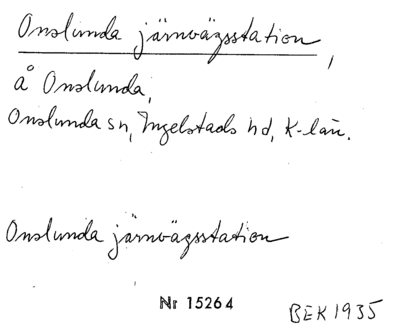 Onslunda järnvägsstation,
å Onslunda,
Onslunda sn, Ingelstads hd, K-län.
Onslunda järnvägsstation
Nr 15264
BEK 1935